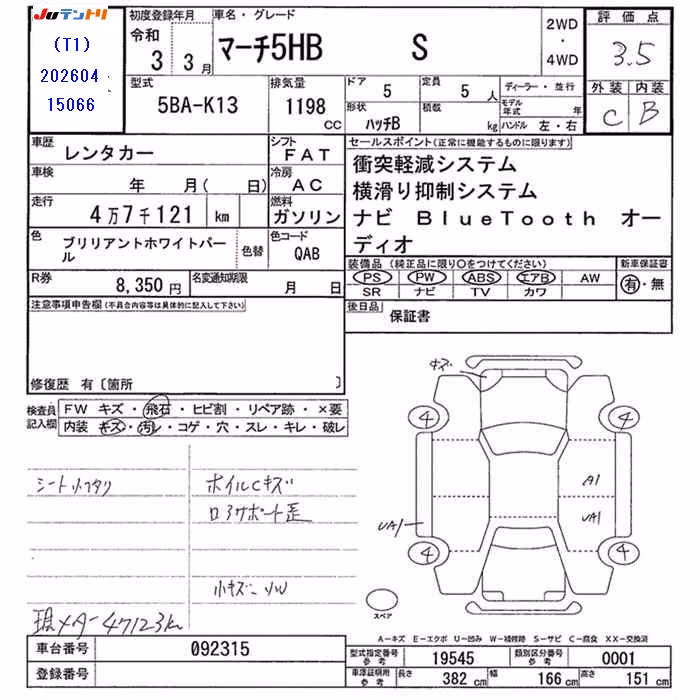 JUテントリ
(T1)
202604
15066
初度登録年月
令和
3 3月
車名・グレード
マーチ5HB S
2WD
・
4WD
評価点
3.5
外装 内装
C B
型式
5BA-K13
排気量
1198
CC
ドア
5
定員
5 人
形状
ハッチB
積載
kg
ディーラー・並行
モデル年式 年
ハンドル 左・右
車歴
レンタカー
シフト
FAT
車検
年 月( 日)
冷房
AC
走行
4万7千121 km
燃料
ガソリン
色
ブリリアントホワイトパール
色替
色コード
QAB
R券
8,350円
名変通知期限
月 日
セールスポイント(正常に機能するものに限ります)
衝突軽減システム
横滑り抑制システム
ナビ BlueTooth オー
ディオ
装備品(純正品に限り○をつけてください)
PS PW ABS エアB AW
SR ナビ TV カワ
新車保証書
有・無
後日品
保証書
注意事項申告欄(不具合内容等は具体的に記入して下さい)
修復歴 有〔箇所 〕
検査員
記入欄
FW キズ・飛石・ヒビ割・リペア跡・×要
内装 キズ・汚レ・コゲ・穴・スレ・キレ・破レ
ホイルCキズ
小キズ
現メーター47123km
キズ
4
4
A1
UA1
UA1
4
4
スペア
A-キズ E-エクボ U-凹み W-補修跡 S-サビ C-腐食 XX-交換済
車台番号
092315
登録番号
型式指定番号
参考
19545
類別区分番号
参考
0001
車庫証明用
参考
長さ
382 cm
幅
166 cm
高さ
151 cm